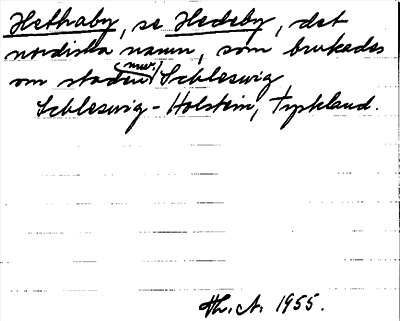 Hethaby, se Hedeby, det
nordiska namn, som brukades
om staden (nuv.) Schleswig
Schleswig-Holstein, Tyskland.
Th. A. 1955.